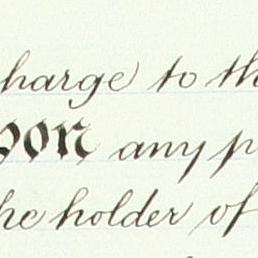 harge to th
pon any p
he holder of